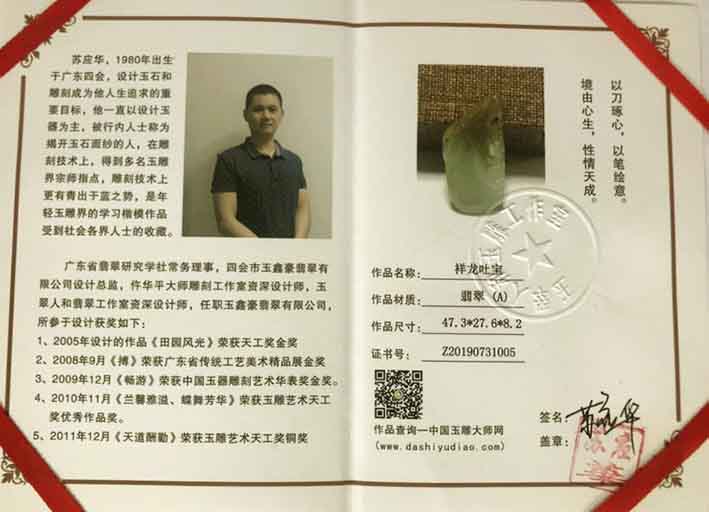 苏应华，1980年出生
于广东四会，设计玉石和
雕刻成为他人生追求的重
要目标，他一直以设计玉
器为主，被行内人士称为
揭开玉石面纱的人，在雕
刻技术上，得到多名玉雕
界宗师指点，雕刻技术上
更有青出于蓝之势，是年
轻玉雕界的学习楷模作品
受到社会各界人士的收藏。
广东省翡翠研究学社常务理事，四会市玉鑫豪翡翠有
限公司设计总监，仵华平大师雕刻工作室资深设计师，玉
翠人和翡翠工作室资深设计师，任职玉鑫豪翡翠有限公司，
所参于设计获奖如下：
1、2005年设计的作品《田园风光》荣获天工奖金奖
2、2008年9月《搏》荣获广东省传统工艺美术精品展金奖
3、2009年12月《畅游》荣获中国玉器雕刻艺术华表奖金奖。
4、2010年11月《兰馨雅溢、蝶舞芳华》荣获玉雕艺术天工
奖优秀作品奖。
5、2011年12月《天道酬勤》荣获玉雕艺术天工奖铜奖
以刀琢心，以笔绘意。
境由心生，性情天成。
作品名称： 祥龙吐宝
作品材质： 翡翠（A）
作品尺寸： 47.3*27.6*8.2
证书号： Z20190731005
作品查询—中国玉雕大师网
(www.dashiyudiao.com)
签名： 苏应华
盖章：